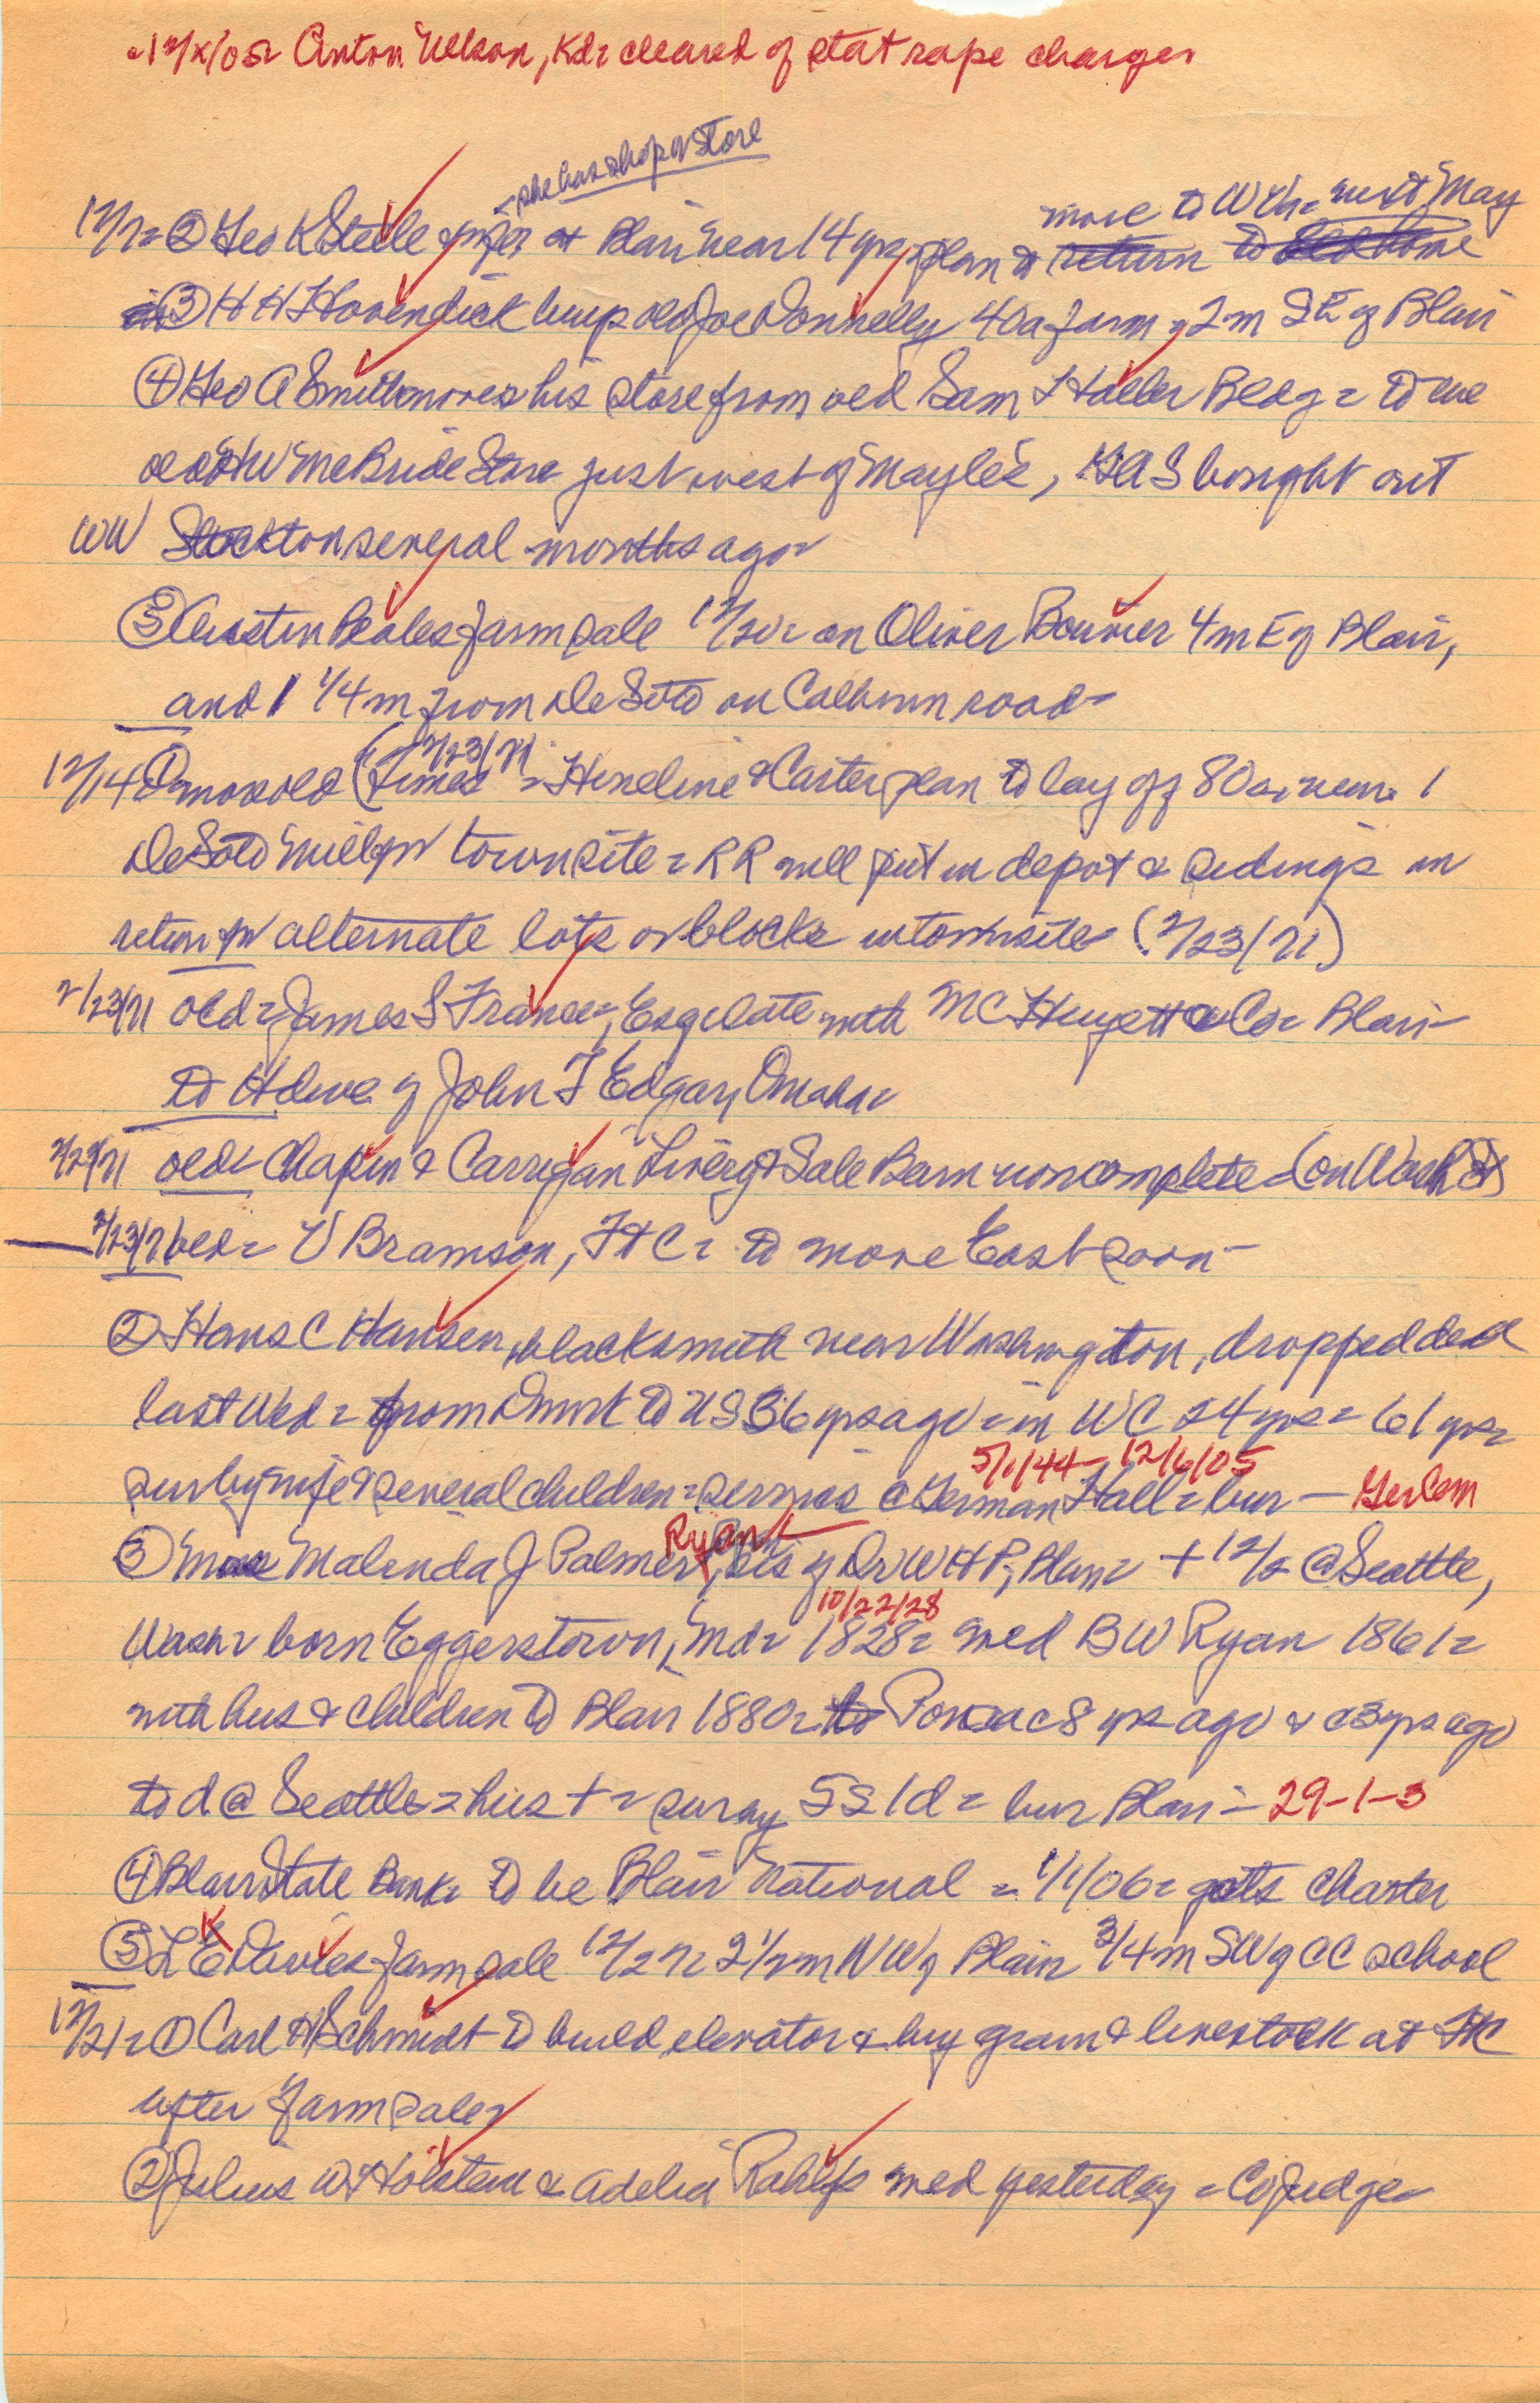 12/x/05= Anton Nelson, Kd= cleared of stat rape charges
- she has shop or store
move to Wch= next May
12/7= ② Geo K Steele & wife at Blair near 14 yrs, plan to return to old home
③ H H Hovendick buys old Joe Donnelly 40a farm, 2m SE of Blair
④ Geo A Smith moves his store from old Sam L Haller Bldg= to the
old HW McBride Store just west of Mayle's, GAS bought out
WW Stockton several months ago=
⑤ Austin Peales farm sale 12/20= on Oliver Bouvier 4m E of Blair,
and 1 1/4 m from DeSoto on Calhoun road-
(= 2/23/71)
12/14 ① more old Times = Hineline & Carter plan to lay off 80a, near
DeSoto mill for townsite= RR will put in depot & sidings in
return for alternate lots or blocks in townsite= (2/23/71)
2/23/71 old= James S France, Esq late with MC Huyett & Co= Blair-
to Hdwe of John T Edgar, Omaha=
2/23/71 old= Chapin & Carrigan Livery & Sale Barn now complete= (on Wash St)
2/23/71 old= V Bramson, FtC= to move East soon-
② Hans C Hansen, blacksmith near Washington, dropped dead
last Wed= from Dmrk to US 36 yrs ago= in WC 24 yrs= 61 yrs=
5/1/44- 12/6/05
sur by wife & several children= services @ German Hall= bur — Ger Cem
Ryan
③ Malenda J Palmer, sis of Dr W H P, Blair= + 12/2 @ Seattle,
10/22/28
Wash= born Eggerstown, Md= 1828= med B W Ryan 1861=
with hus & children to Blair 1880= to Ponca c8 yrs ago & c3 yrs ago
to d @ Seattle= hus += sur by 5s 1d= bur Blair- 29-1-3
④ Blair State Bank= to be Blair National = 1/1/06= gets charter
K
⑤ L E Davies farm sale 12/27= 2 1/2m NW of Blair= 3/4m SW of CC school
12/21= ① Carl H Schmidt to build elevator & buy grain & livestock at FtC
after farm sale=
② Julius W Holstein & Adelia Rahlfs med yesterday = Co Judge=